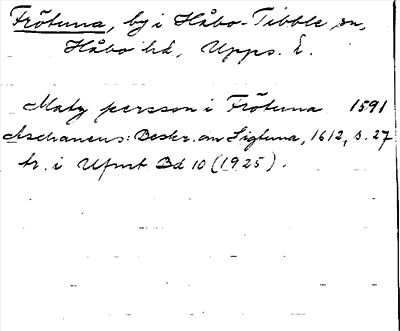 Frötuna, by i Håbo-Tibble sn,
Håbo hd, Upps. l.
Mats persson i Frötuna 1591
Aschaneus: Beskr. om Sigtuna, 1612, s. 27
tr. i Ufmt Bd 10 (1925).